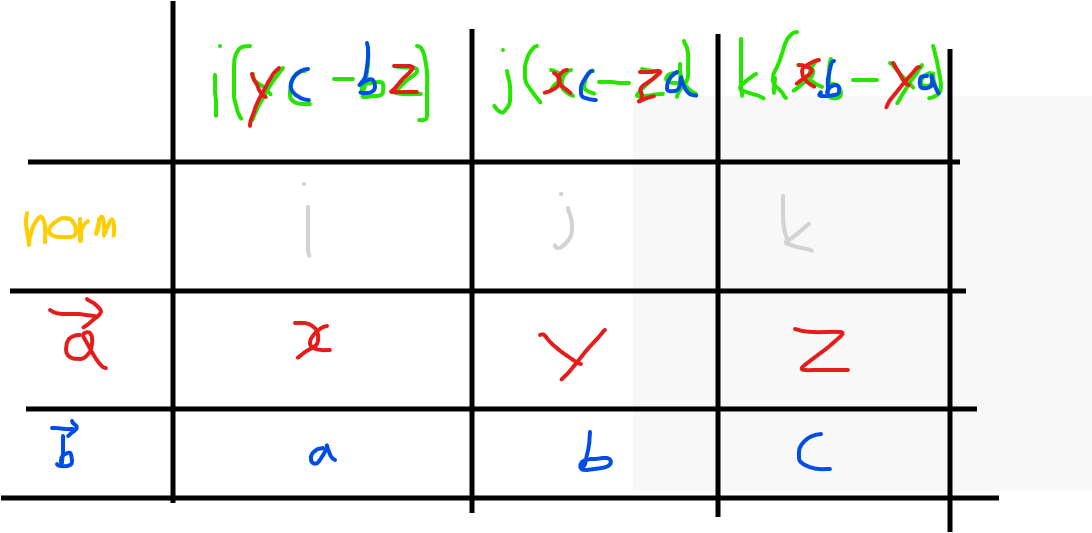 i(yc - bz) j(xc - za) k(xb - ya)
norm i j k
a x y z
b a b c